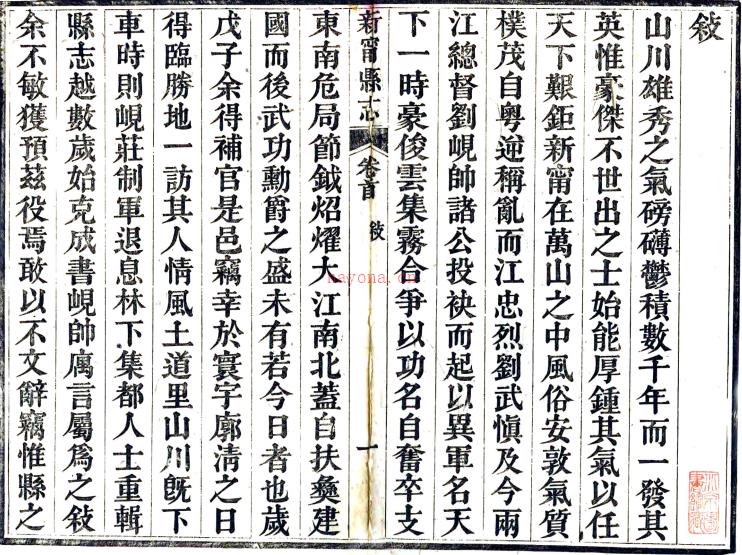 敍
山川雄秀之氣磅礴鬱積數千年而一發其
英惟豪傑不世出之士始能厚鍾其氣以任
天下艱鉅新甯在萬山之中風俗安敦氣質
樸茂自粵逆稱亂而江忠烈劉武慎及今兩
江總督劉峴帥諸公投袂而起以異軍名天
下一時豪俊雲集霧合爭以功名自奮卒支
新甯縣志 卷首 敍 一
東南危局節鉞炤燿大江南北蓋自扶彝建
國而後武功勳爵之盛未有若今日者也歲
戊子余得補官是邑竊幸於寰宇廓清之日
得臨勝地一訪其人情風土道里山川旣下
車時則峴莊制軍退息林下集都人士重輯
縣志越數歲始克成書峴帥寓言屬爲之敍
余不敏獲預茲役焉敢以不文辭竊惟縣之
nayona.cn